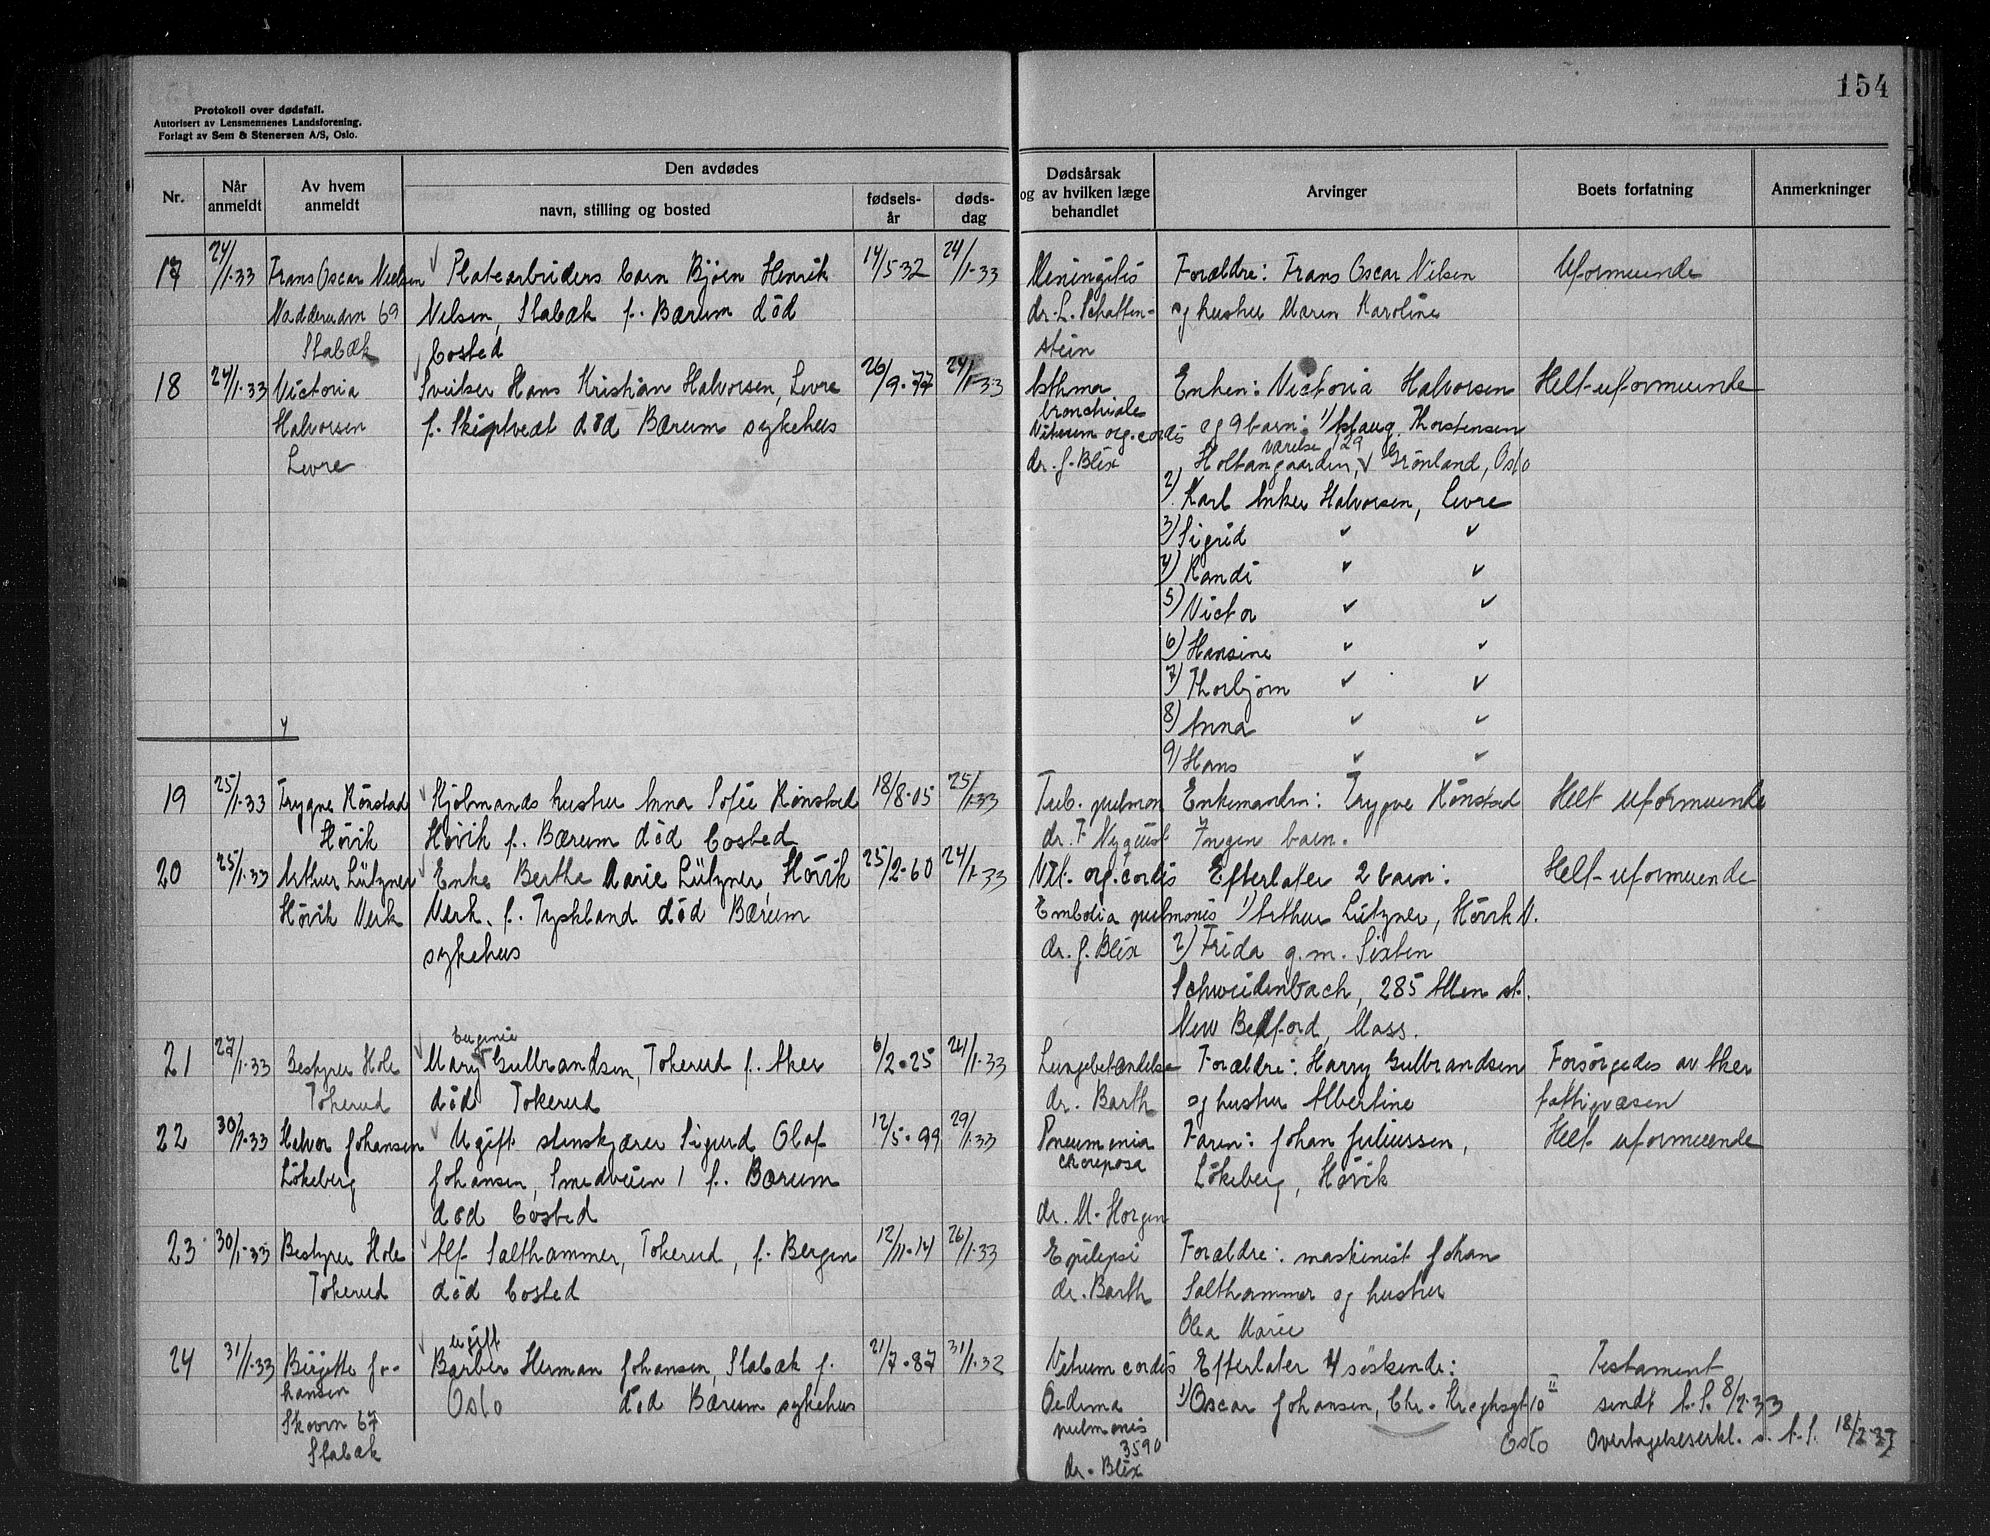 154
Protokoll over dødsfall.
Autorisert av Lensmennenes Landsforening.
Forlagt av Sem & Stenersen A/S, Oslo.
Nr.
Når anmeldt
Av hvem anmeldt
Den avdødes
navn, stilling og bosted
fødsels-år
døds-dag
Dødsårsak og av hvilken læge behandlet
Arvinger
Boets forfatning
Anmerkninger
17
24/1.33
Frans Oscar Nielsen
69
Stabæk
Platearbeiders barn Bjørn Henrik
Nilsen, Stabæk f. Bærum død
bosted
14/5 32
24/1-33
Meningitis
dr. L. Schatten-
stein
Forældre: Frans Oscar Nilsen
og hustru Maren Karoline
Uformuende
18
24/1.33
Victoria
Halvorsen
Levre
Sveitser Hans Kristian Halvorsen, Levre
f. Skiptvedt død Bærum sykehus
26/9.77
24/1-33
Asthma
bronchiale
Vitium org. cordis
dr. J. Blix
Enken: Victoria Halvorsen
og 9 barn: 1) Aslaug Thorstensen
værelse 129
Holtangaarden, Grønland, Oslo
2) Karl Anker Halvorsen, Levre
3) Sigrid
4) Randi
5) Victor
6) Hansine
7) Thorbjørn
8) Anna
9) Hans
Helt uformuende
19
25/1.33
Trygve Rønstad
Høvik
hustru Anna Sofie Rønstad
Høvik f. Bærum død bosted
18/8.05
25/1.33
Tub. pulmon
dr. F. Nyquist
Enkemanden: Trygve Rønstad
Ingen barn.
Helt uformuende
20
25/1.33
Arthur Lützner
Høvik Verk
Enke Berthe Marie Lützner, Høvik
Verk. f. Tyskland død Bærum
sykehus
25/2.60
24/1.33
Vit. org. cordis
Embolia pulmonis
dr. J. Blix
Efterlater 2 barn:
1) Arthur Lützner, Høvik V.
2) Frida g.m. Sixten
Schweidenbach, 285 Allen st.
New Bedford, Mass.
Helt uformuende
21
27/1.33
Bestyrer Hole
Tokerud
Eugenie
Mary Gulbrandsen, Tokerud f. Aker
død Tokerud
6/2.25
24/1.33
Lungebetændelse
dr. Barth
Forældre: Harry Gulbrandsen
og hustru Albertine
Forsørgedes av Aker
fattigvæsen
22
30/1.33
Halvor Johansen
Løkeberg
Ugift stenskjærer Sigurd Olaf
Johansen, Smedveien 1 f. Bærum
død bosted
12/5.99
29/1.33
Pneumonia
dr. M. Horgen
Faren: Johan Juliussen,
Løkeberg, Høvik
Helt uformuende
23
30/1.33
Bestyrer Hole
Tokerud
Alf Salthammer, Tokerud, f. Bergen
død bosted
12/11.14
26/1.33
Epilepsi
dr. Barth
Forældre: maskinist Johan
Salthammer og hustru
Olea Marie
24
31/1.33
Birgitte Jo-
hansen
67
Stabæk
ugift
Barber Herman Johansen, Stabæk f.
Oslo død Bærum sykehus
21/7.87
31/1.32
Vitium cordis
Oedema
pulmonis
3590
dr. Blix
Efterlater 4 søskende:
1) Oscar Johansen, Chr. Kroghsgt 10 II
Oslo
Testament
sendt 8/2.33
Overtagelseserkl. s. 18/2.33